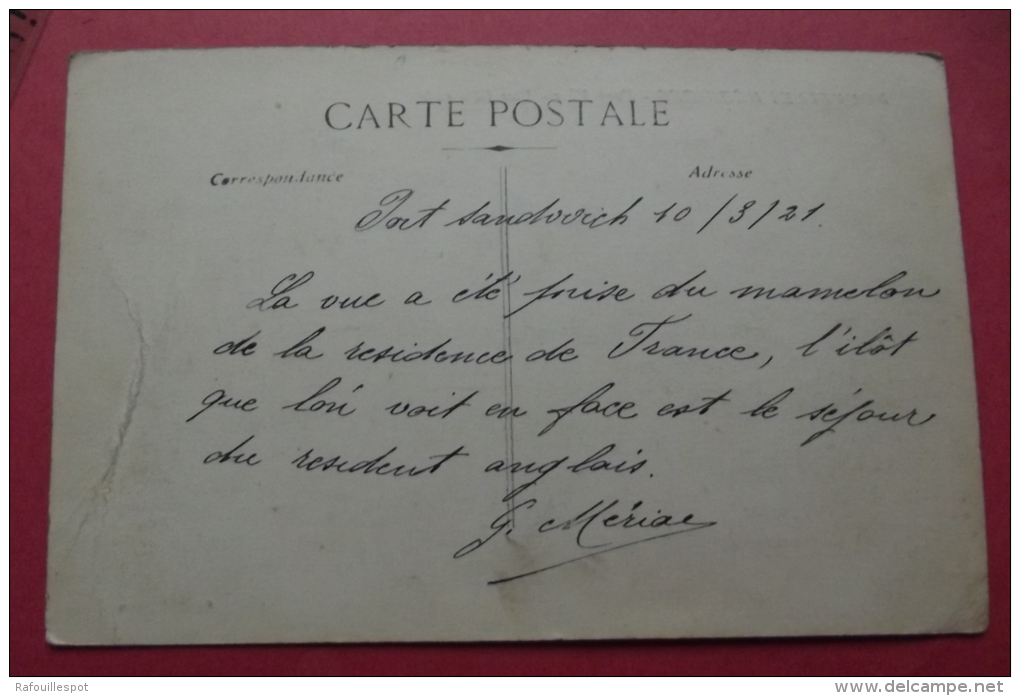 CARTE POSTALE
Correspondance
Adresse
Port Sandwich 10/3/21.
La vue a été prise du mamelon
de la residence de France, l'ilôt
que l'on voit en face est le séjour
du resident anglais.
G. Mériac
Rafouillespot
www.delcampe.net